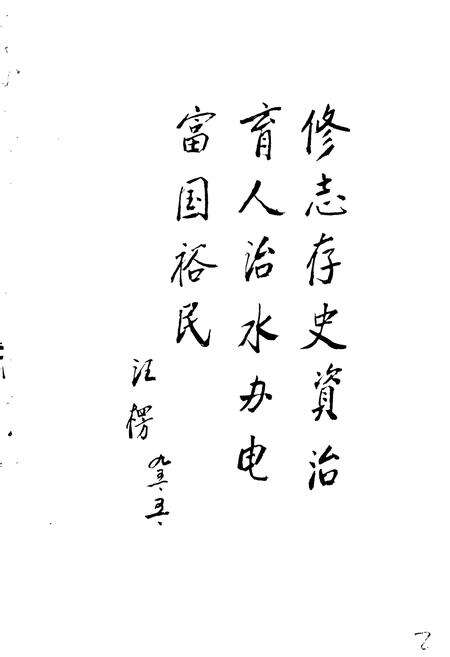 修志存史資治
育人治水办电
富国裕民
汪楞
九三·五·